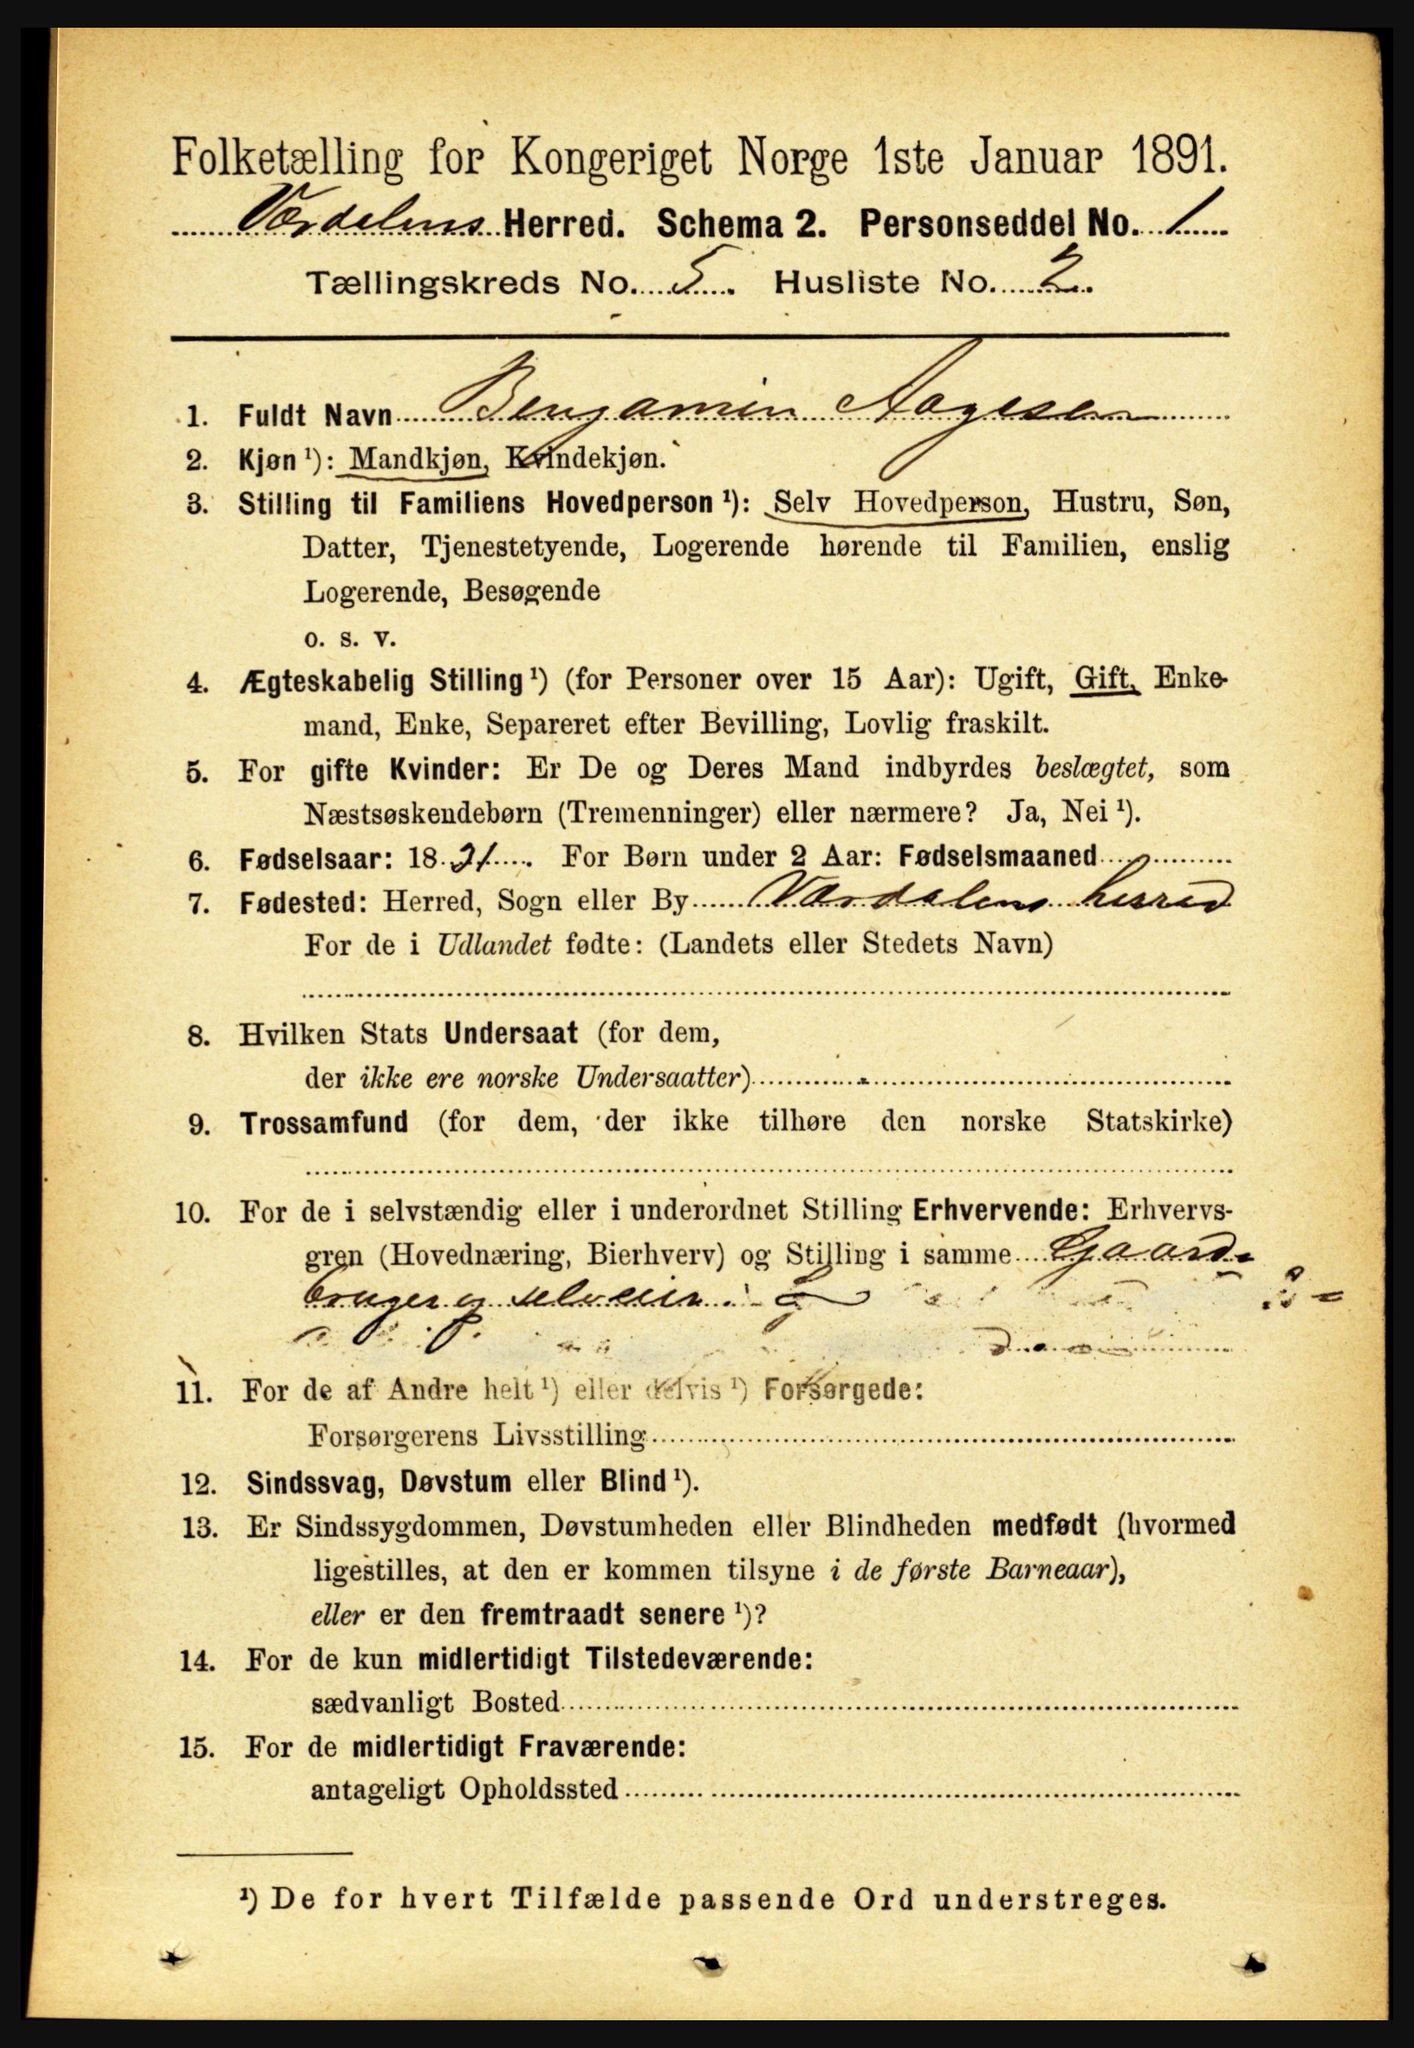 Folketælling for Kongeriget Norge 1ste Januar 1891.
Værdalens Herred. Schema 2. Personseddel No. 1
Tællingskreds No. 5. Husliste No. 2.
1. Fuldt Navn Benjamin Aagesen
2. Kjøn ¹): Mandkjøn, Kvindekjøn.
3. Stilling til Familiens Hovedperson ¹): Selv Hovedperson, Hustru, Søn,
Datter, Tjenestetyende, Logerende hørende til Familien, enslig
Logerende, Besøgende
o. s. v.
4. Ægteskabelig Stilling ¹) (for Personer over 15 Aar): Ugift, Gift, Enke-
mand, Enke, Separeret efter Bevilling, Lovlig fraskilt.
5. For gifte Kvinder: Er De og Deres Mand indbyrdes beslægtet, som
Næstsøskendebørn (Tremenninger) eller nærmere? Ja, Nei ¹).
6. Fødselsaar: 18 . For Børn under 2 Aar: Fødselsmaaned
7. Fødested: Herred, Sogn eller By Værdalens herred
For de i Udlandet fødte: (Landets eller Stedets Navn)
8. Hvilken Stats Undersaat (for dem,
der ikke ere norske Undersaatter)
9. Trossamfund (for dem, der ikke tilhøre den norske Statskirke)
10. For de i selvstændig eller i underordnet Stilling Erhvervende: Erhvervs-
gren (Hovednæring, Bierhverv) og Stilling i samme Gaard-
bruger og selveier
11. For de af Andre helt ¹) eller delvis ¹) Forsørgede:
Forsørgerens Livsstilling
12. Sindssvag, Døvstum eller Blind ¹).
13. Er Sindssygdommen, Døvstumheden eller Blindheden medfødt (hvormed
ligestilles, at den er kommen tilsyne i de første Barneaar),
eller er den fremtraadt senere ¹)?
14. For de kun midlertidigt Tilstedeværende:
sædvanligt Bosted
15. For de midlertidigt Fraværende:
antageligt Opholdssted
¹) De for hvert Tilfælde passende Ord understreges.